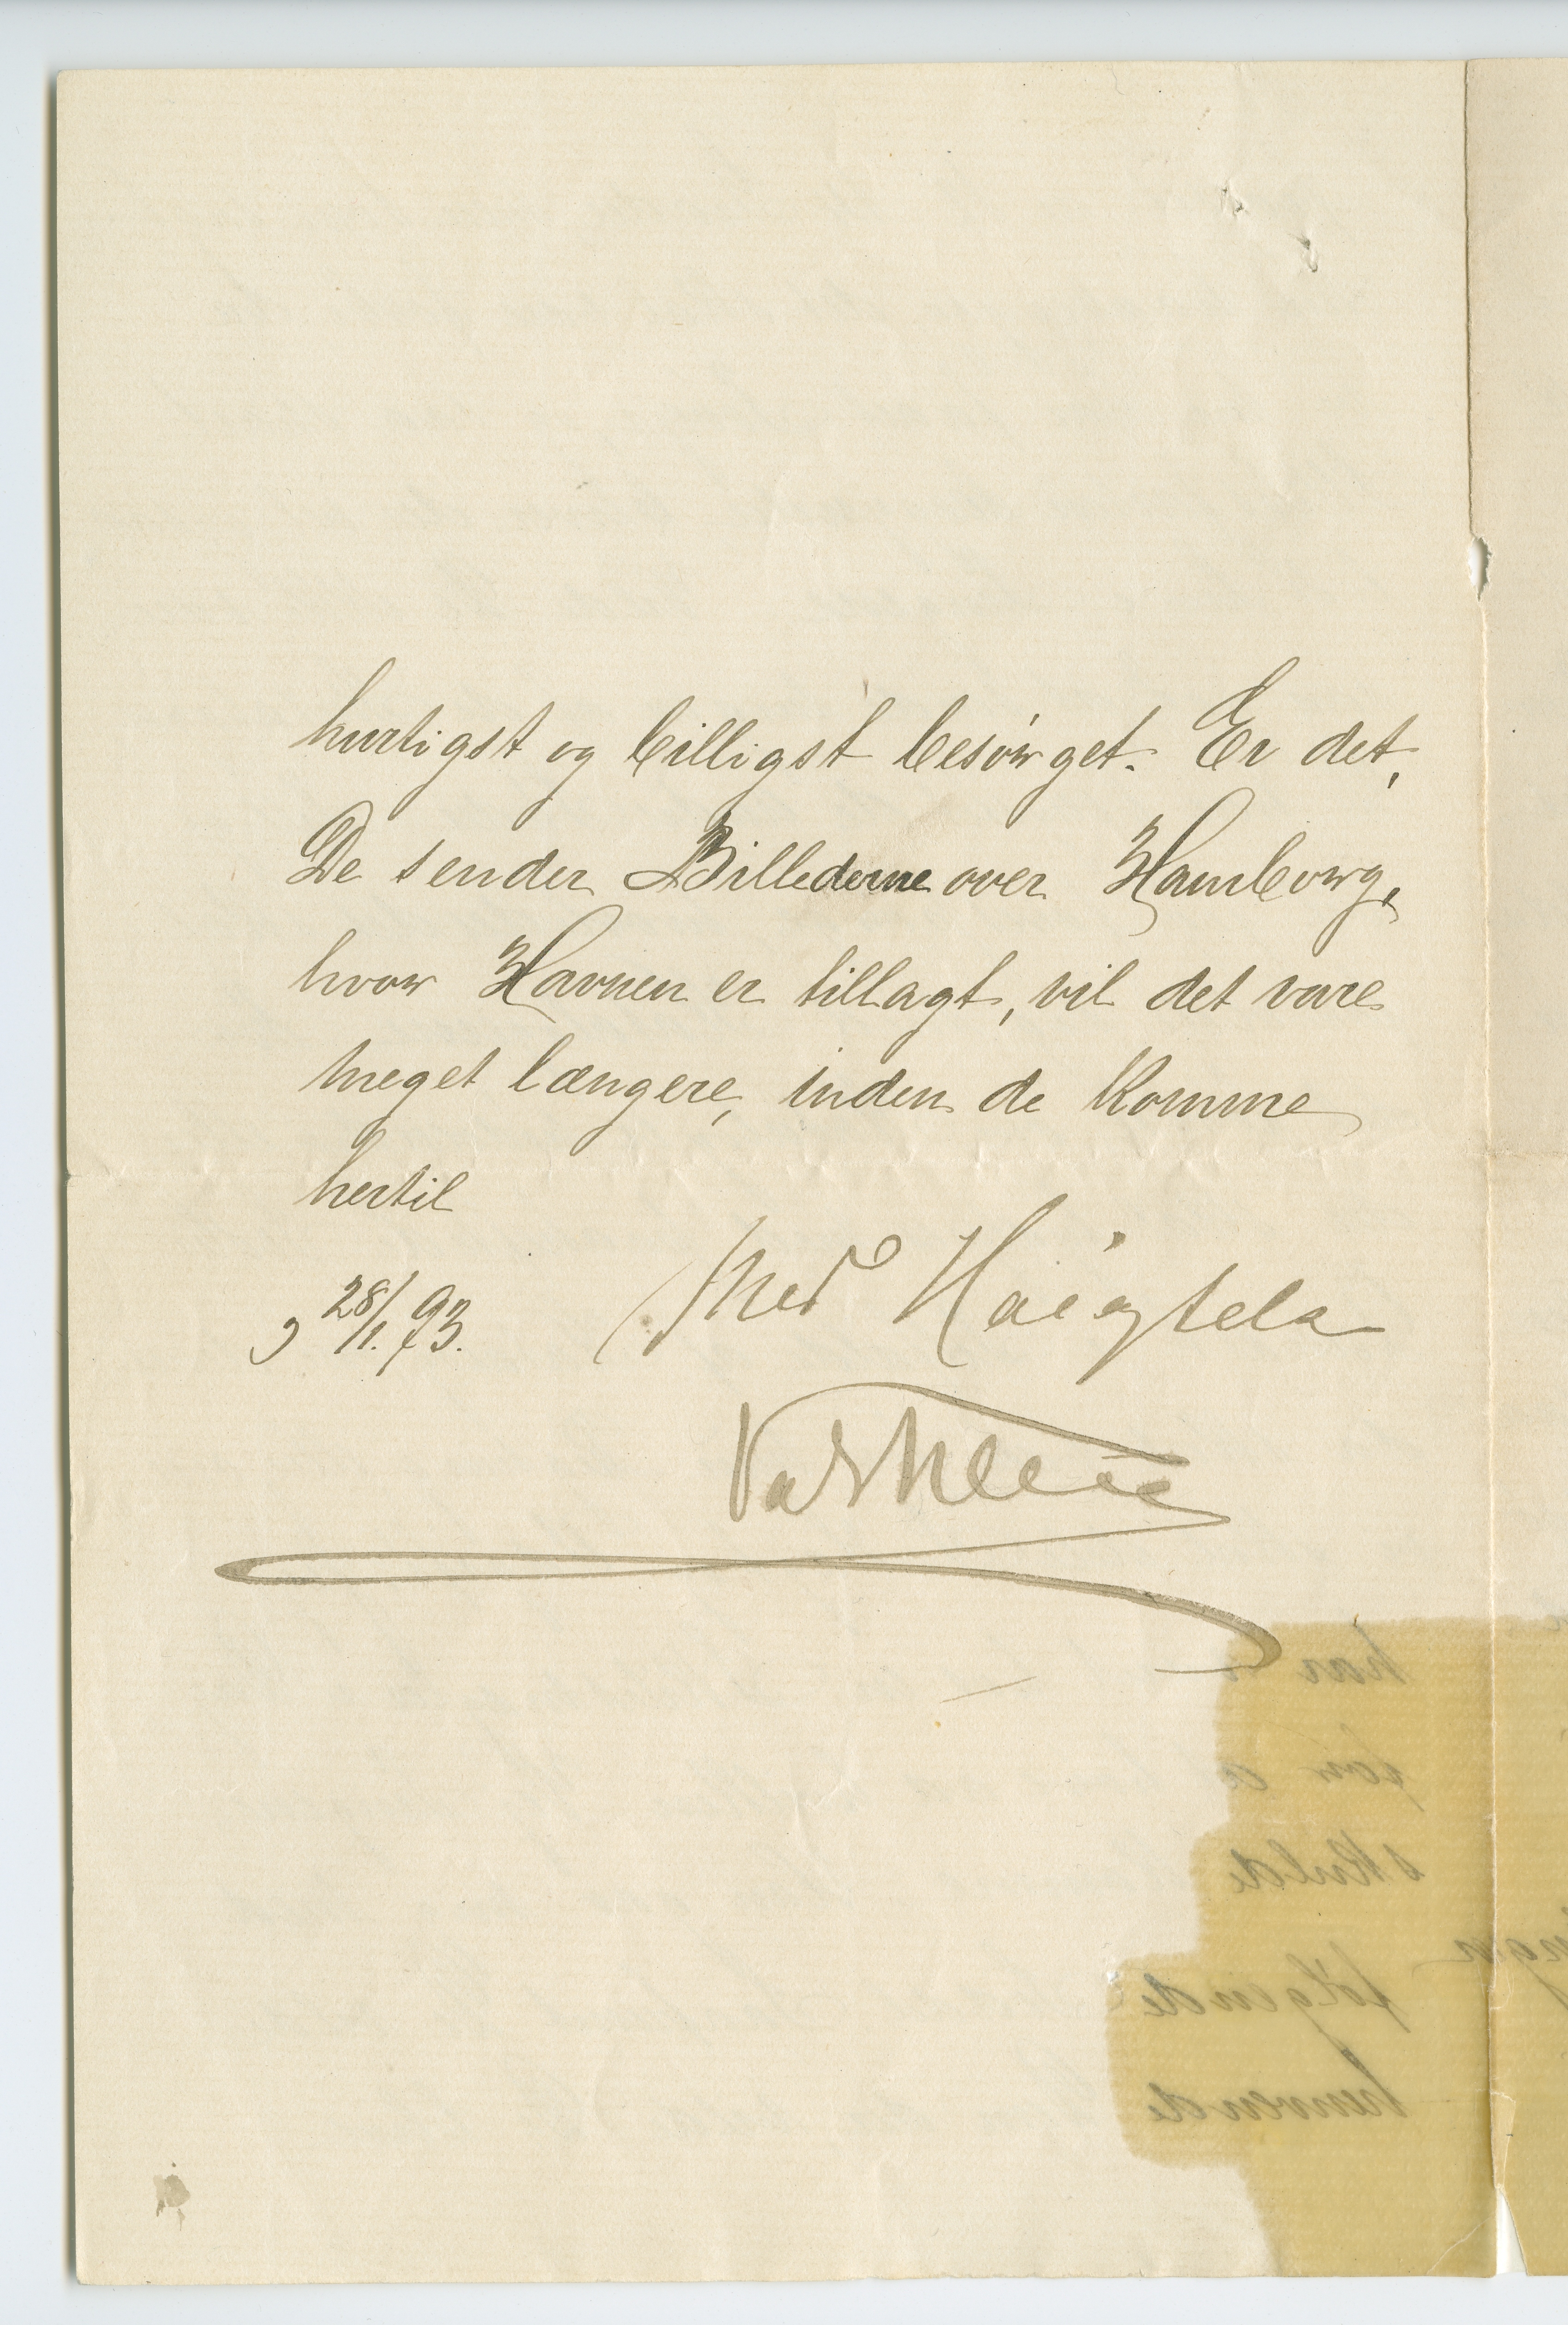 hurtigst og billigst besørget. Er det,
De sender Billederne over Hamborg,
hvor Havnen er tillagt, vil det vare
meget længere, inden de komme
hertil
28/1. 93.
Med Høiagtelse
har
for
skulde
følgende
henvende